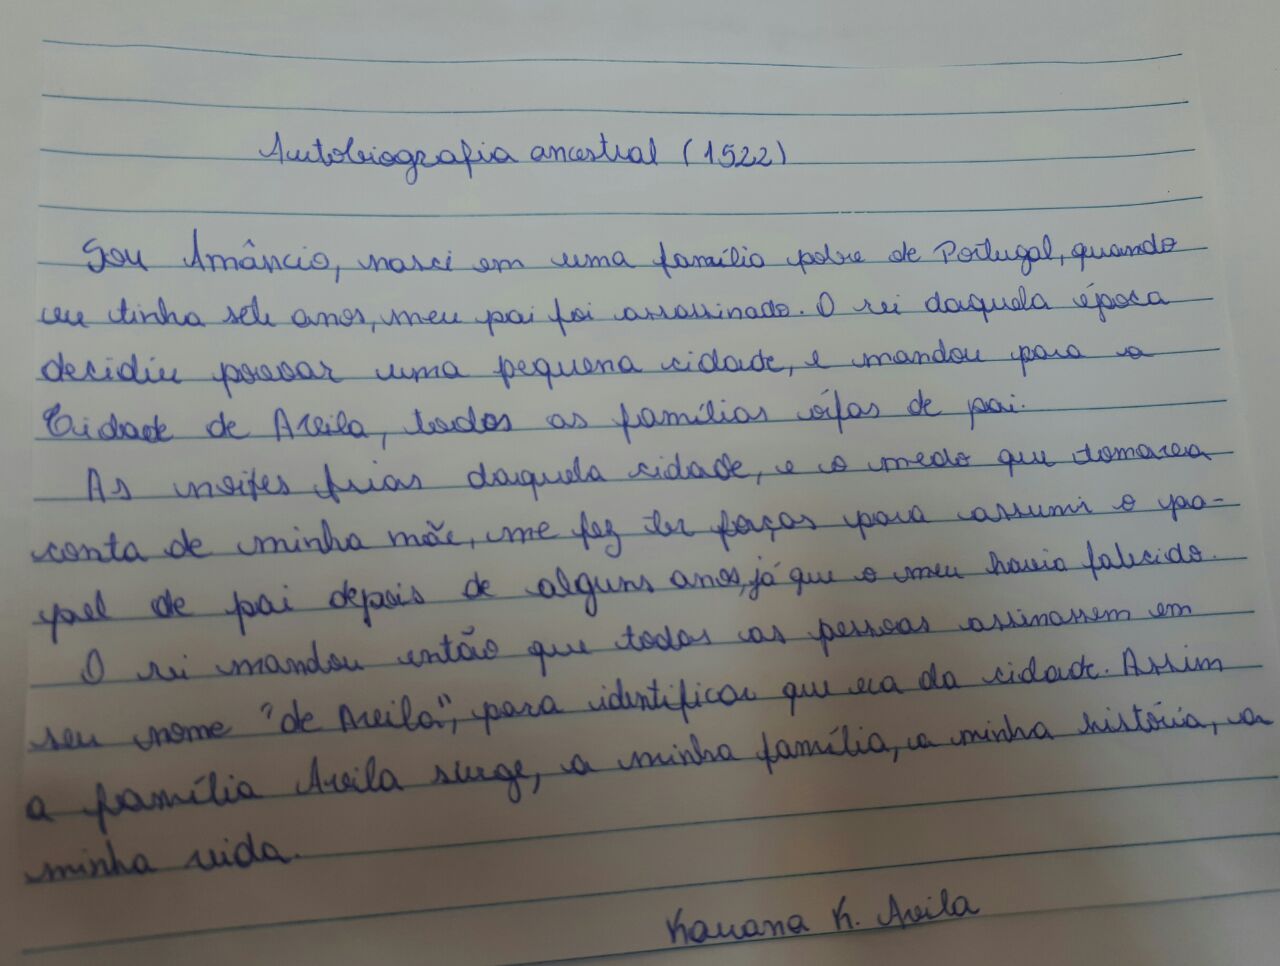 Autobiografia ancestral (1522)
Sou Amâncio, nasci em uma família pobre de Portugal, quando
eu tinha sete anos, meu pai foi assassinado. O rei daquela época
decidiu povoar uma pequena cidade, e mandou para a
Cidade de Avila, todas as famílias orfas de pai.
As noites frias daquela cidade, e o medo que tomava
conta de minha mãe, me fez ter forças para assumi o pa-
pel de pai depois de alguns anos, já que o meu havia falecido.
O rei mandou então que todas as pessoas assinassem em
seu nome "de Avila", para identificar que era da cidade. Assim
a família Avila surge, a minha família, a minha história, a
minha vida.
Kauana K. Avila